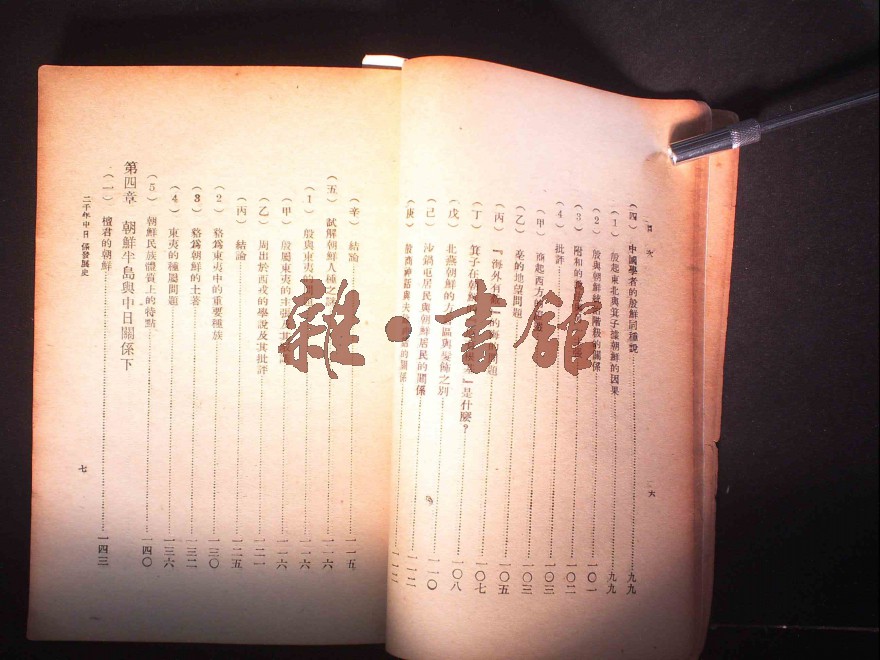 目次
六
(四) 中國學者的殷鮮同種說 九九
(1) 殷起東北與箕子據朝鮮的因果 九九
(2) 殷與朝鮮統治階級的關係 一〇一
(3) 附和的 一〇二
(4) 批評 一〇三
(甲) 商起西方的 一〇三
(乙) 亳的地望問題 一〇五
(丙) 『海外有 』的海 題
(丁) 箕子在朝鮮 』是什麼? 一〇七
(戊) 北燕朝鮮的 區與 之別 一〇八
(己) 沙鍋屯居民與朝鮮居民的關係 一一〇
(庚) 殷商神話與夫 的關係 一一二
(辛) 結論 一一五
(五) 試解朝鮮人種之謎 一一六
(1) 殷與東夷的 一一六
(甲) 殷屬東夷的主張 其 一一六
(乙) 周出於西戎的學說及其批評 一二一
(丙) 結論 一二五
(2) 貉為東夷中的重要種族 一三〇
(3) 貉為朝鮮的土著 一三二
(4) 東夷的種屬問題 一三六
(5) 朝鮮民族體質上的特點 一四〇
第四章 朝鮮半島與中日關係下
(一) 檀君的朝鮮 一四三
二千年中日 係發展史
七
雜·書館